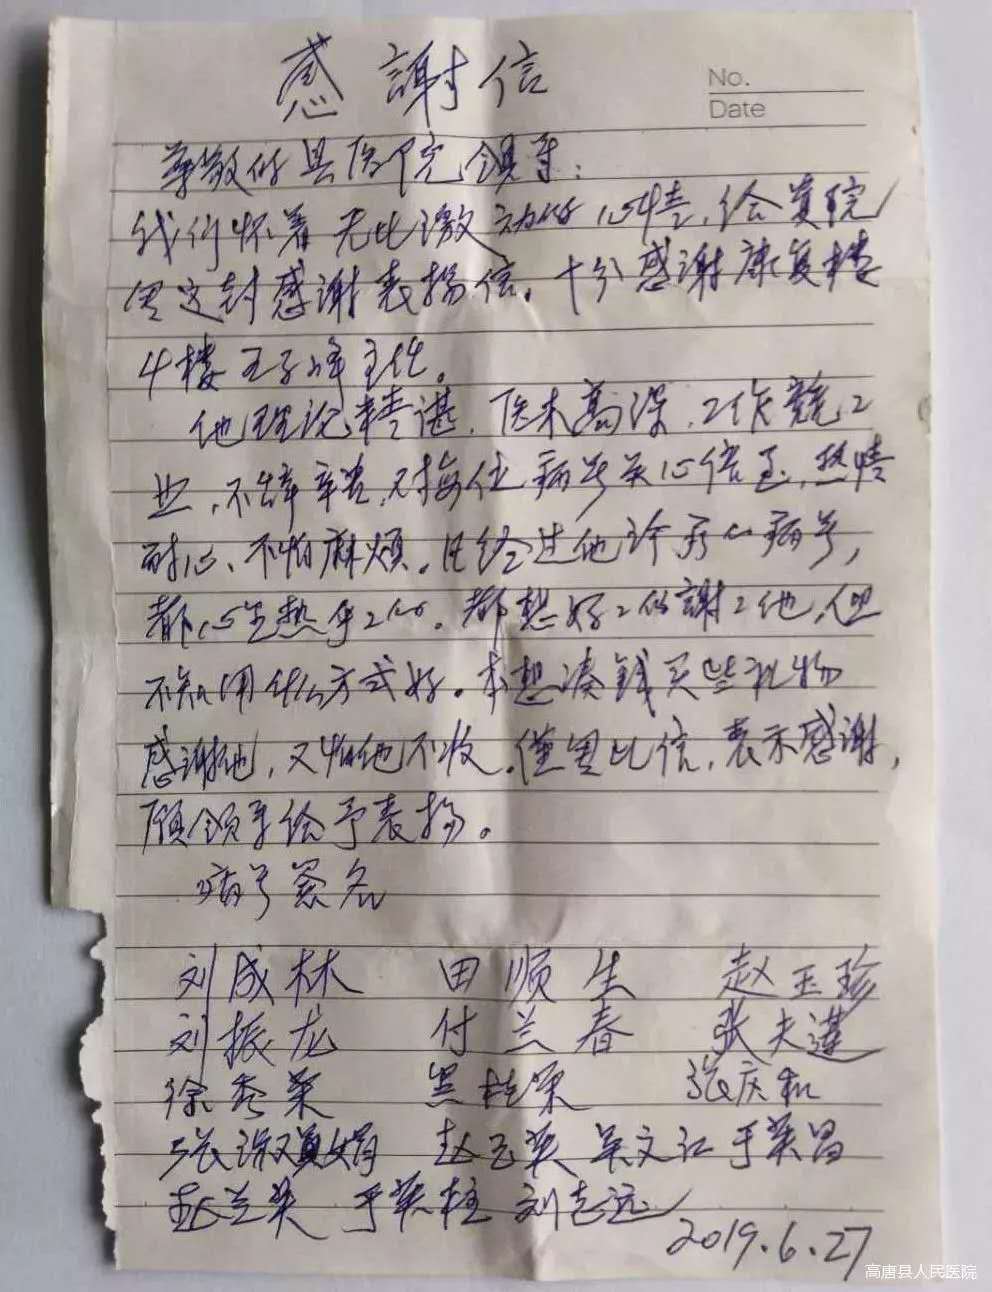 感謝信
No.
Date
尊敬的县医院领导：
我们怀着无比激动的心情，给贵院
写这封感谢表扬信。十分感谢康复楼
4楼王子峰主任。
他理论精湛，医术高深，工作兢兢
业，不辞辛苦，对每位病号关心倍至，热情
耐心、不怕麻烦。凡经过他诊疗的病号，
都心里热乎乎的。都想好好的謝谢他，但
不知用什么方式好。本想凑钱买些礼物
感谢他，又怕他不收，仅写此信，表示感谢，
愿领导给予表扬。
病号签名
刘成林 田顺生 赵玉珍
刘振龙 付兰春 张夫莲
徐秀荣 黑桂荣 张庆和
张淑娟 赵玉英 吴文江 于英昌
赵兰英 于英柱 刘志远
2019.6.27
高唐县人民医院